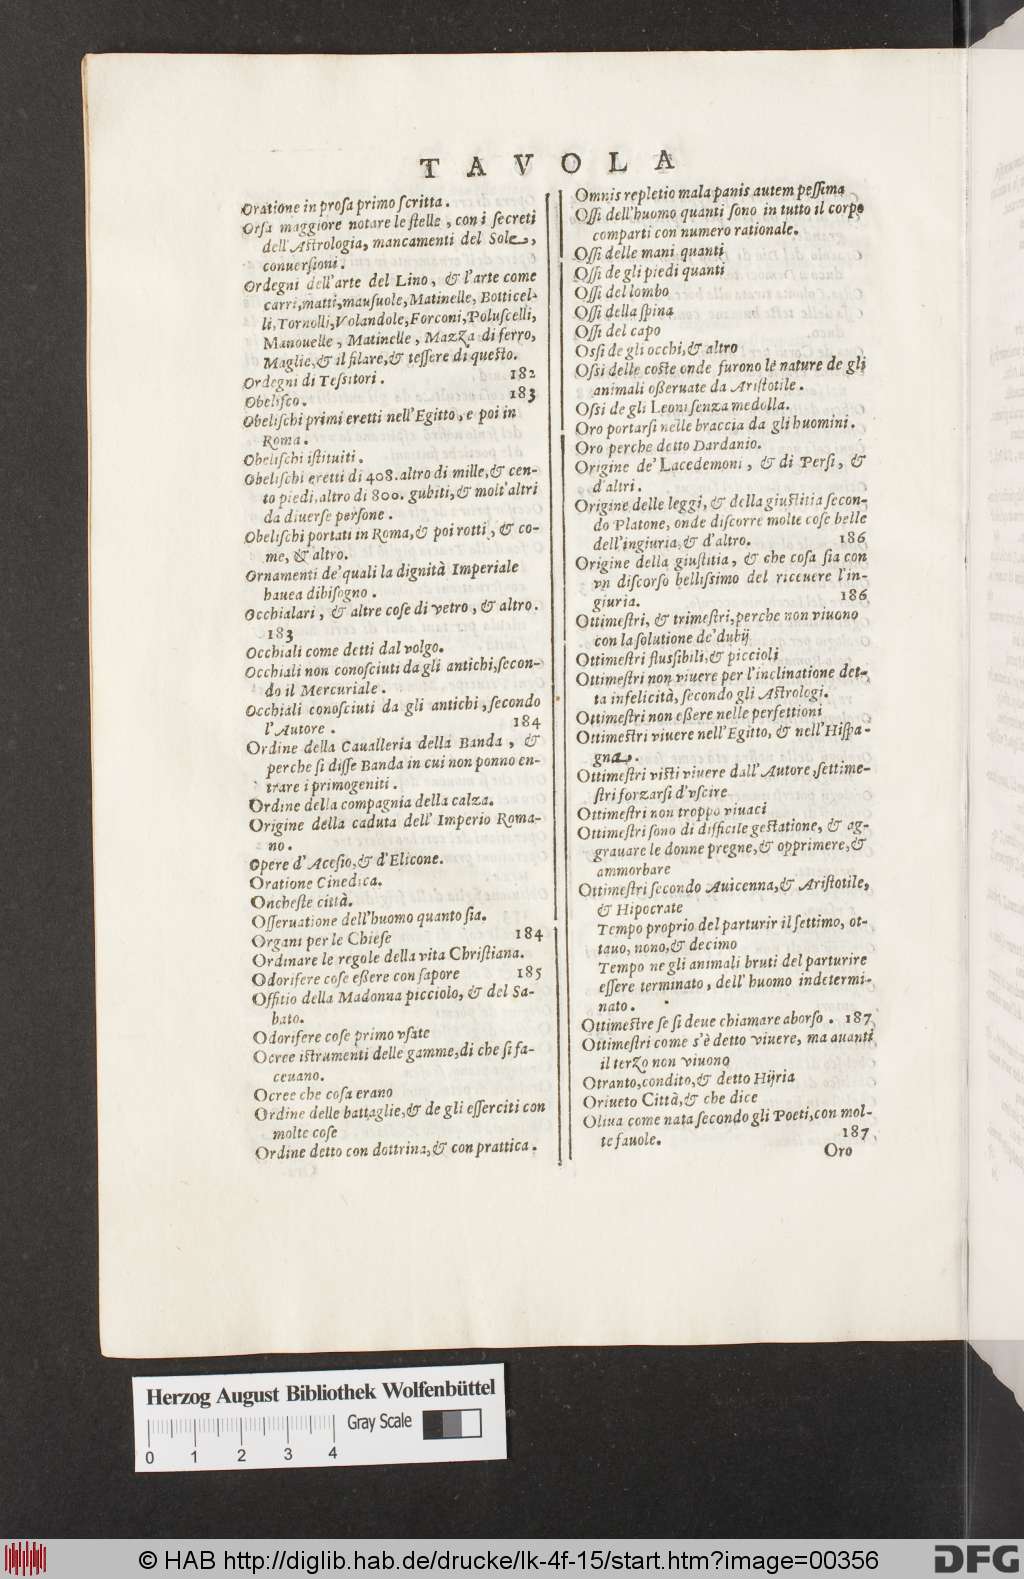 TAVOLA
Oratione in prosa primo scritta.
Orsa maggiore notare le stelle, con i secreti
dell'Astrologia, mancamenti del Sole,
conuersioni.
Ordegni dell'arte del Lino, & l'arte come
carri, matti, mausuole, Matinelle, Botticel-
li, Tornolli, Volandole, Forconi, Poluscelli,
Manouelle, Matinelle, Mazza di ferro,
Maglie, & il filare, & tessere di questo.
Ordegni di Tessitori. 182
Obelisco. 183
Obelischi primi eretti nell'Egitto, e poi in
Roma.
Obelischi istituiti.
Obelischi eretti di 408. altro di mille, & cen-
to piedi, altro di 800. gubiti, & molt'altri
da diuerse persone.
Obelischi portati in Roma, & poi rotti, & co-
me, & altro.
Ornamenti de'quali la dignità Imperiale
hauea dibisogno.
Occhialari, & altre cose di vetro, & altro.
183
Occhiali come detti dal volgo.
Occhiali non conosciuti da gli antichi, secon-
do il Mercuriale.
Occhiali conosciuti da gli antichi, secondo
l'Autore. 184
Ordine della Caualleria della Banda, &
perche si disse Banda in cui non ponno en-
trare i primogeniti.
Ordine della compagnia della calza.
Origine della caduta dell'Imperio Roma-
no.
Opere d'Acesio, & d'Elicone.
Oratione Cinedica.
Oncheste città.
Osseruatione dell'huomo quanto sia.
Organi per le Chiese 184
Ordinare le regole della vita Christiana.
Odorifere cose essere con sapore 185
Offitio della Madonna picciolo, & del Sa-
bato.
Odorifere cose primo vsate
Ocree istrumenti delle gamme, di che si fa-
ceuano.
Ocree che cosa erano
Ordine delle battaglie, & de gli esserciti con
molte cose
Ordine detto con dottrina, & con prattica.
Omnis repletio mala panis autem pessima
Ossi dell'huomo quanti sono in tutto il corpo
comparti con numero rationale.
Ossi delle mani quanti
Ossi de gli piedi quanti
Ossi del lombo
Ossi della spina
Ossi del capo
Ossi de gli occhi, & altro
Ossi delle coste onde furono le nature de gli
animali osseruate da Aristotile.
Ossi de gli Leoni senza medolla.
Oro portarsi nelle braccia da gli huomini.
Oro perche detto Dardanio.
Origine de' Lacedemoni, & di Persi, &
d'altri.
Origine delle leggi, & della giustitia secon-
do Platone, onde discorre molte cose belle
dell'ingiuria, & d'altro. 186
Origine della giustitia, & che cosa sia con
vn discorso bellissimo del riceuere l'in-
giuria. 186
Ottimestri, & trimestri, perche non viuono
con la solutione de'dubij
Ottimestri flussibili, & piccioli
Ottimestri non viuere per l'inclinatione det-
ta infelicità, secondo gli Astrologi.
Ottimestri non essere nelle perfettioni
Ottimestri viuere nell'Egitto, & nell'Hispa-
gna.
Ottimestri visti viuere dall'Autore, settime-
stri forzarsi d'vscire
Ottimestri non troppo viuaci
Ottimestri sono di difficile gestatione, & ag-
grauare le donne pregne, & opprimere, &
ammorbare
Ottimestri secondo Auicenna, & Aristotile,
& Hipocrate
Tempo proprio del parturir il settimo, ot-
tauo, nono, & decimo
Tempo ne gli animali bruti del parturire
essere terminato, dell'huomo indetermi-
nato.
Ottimestre se si deue chiamare aborso. 187
Ottimestri come s'è detto viuere, ma auanti
il terzo non viuono
Otranto, condito, & detto Hijria
Oriueto Città, & che dice
Oliua come nata secondo gli Poeti, con mol-
te fauole. 187
Oro
Herzog August Bibliothek Wolfenbüttel
Gray Scale
0 1 2 3 4
© HAB http://diglib.hab.de/drucke/lk-4f-15/start.htm?image=00356
DFG